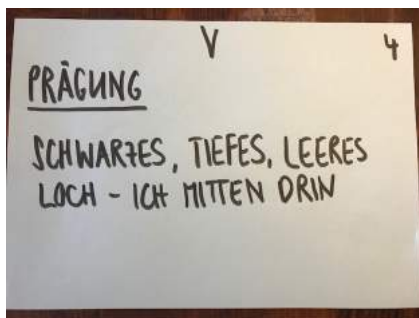 V 4
PRÄGUNG
SCHWARZES, TIEFES, LEERES
LOCH - ICH MITTEN DRIN